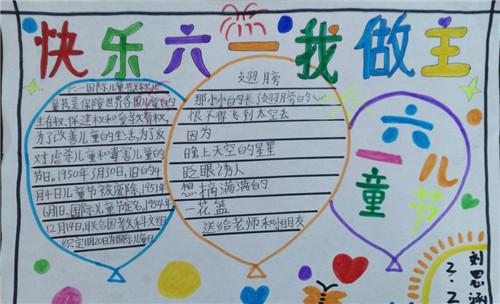 快乐六一我做主
六一国际儿童节
童节是保障世界各国儿童的
生存权、保健权和受教育权,
为了改善儿童的生活,为了反
对虐杀儿童和毒害儿童的
节日。1950年3月30日,旧的4
月4日儿童节被废除,1951年
6月1日,国际儿童节定名,1954年
12月14日,联合国教科文组
织定11月20日为国际儿童日
翅膀
那小小的长了翅膀的心
恨不得飞到太空去
因为
晚上天空的星星
眨眼诱人
想摘满满的
一花篮
送给老师和小朋友
六一
儿童节
刘思涵